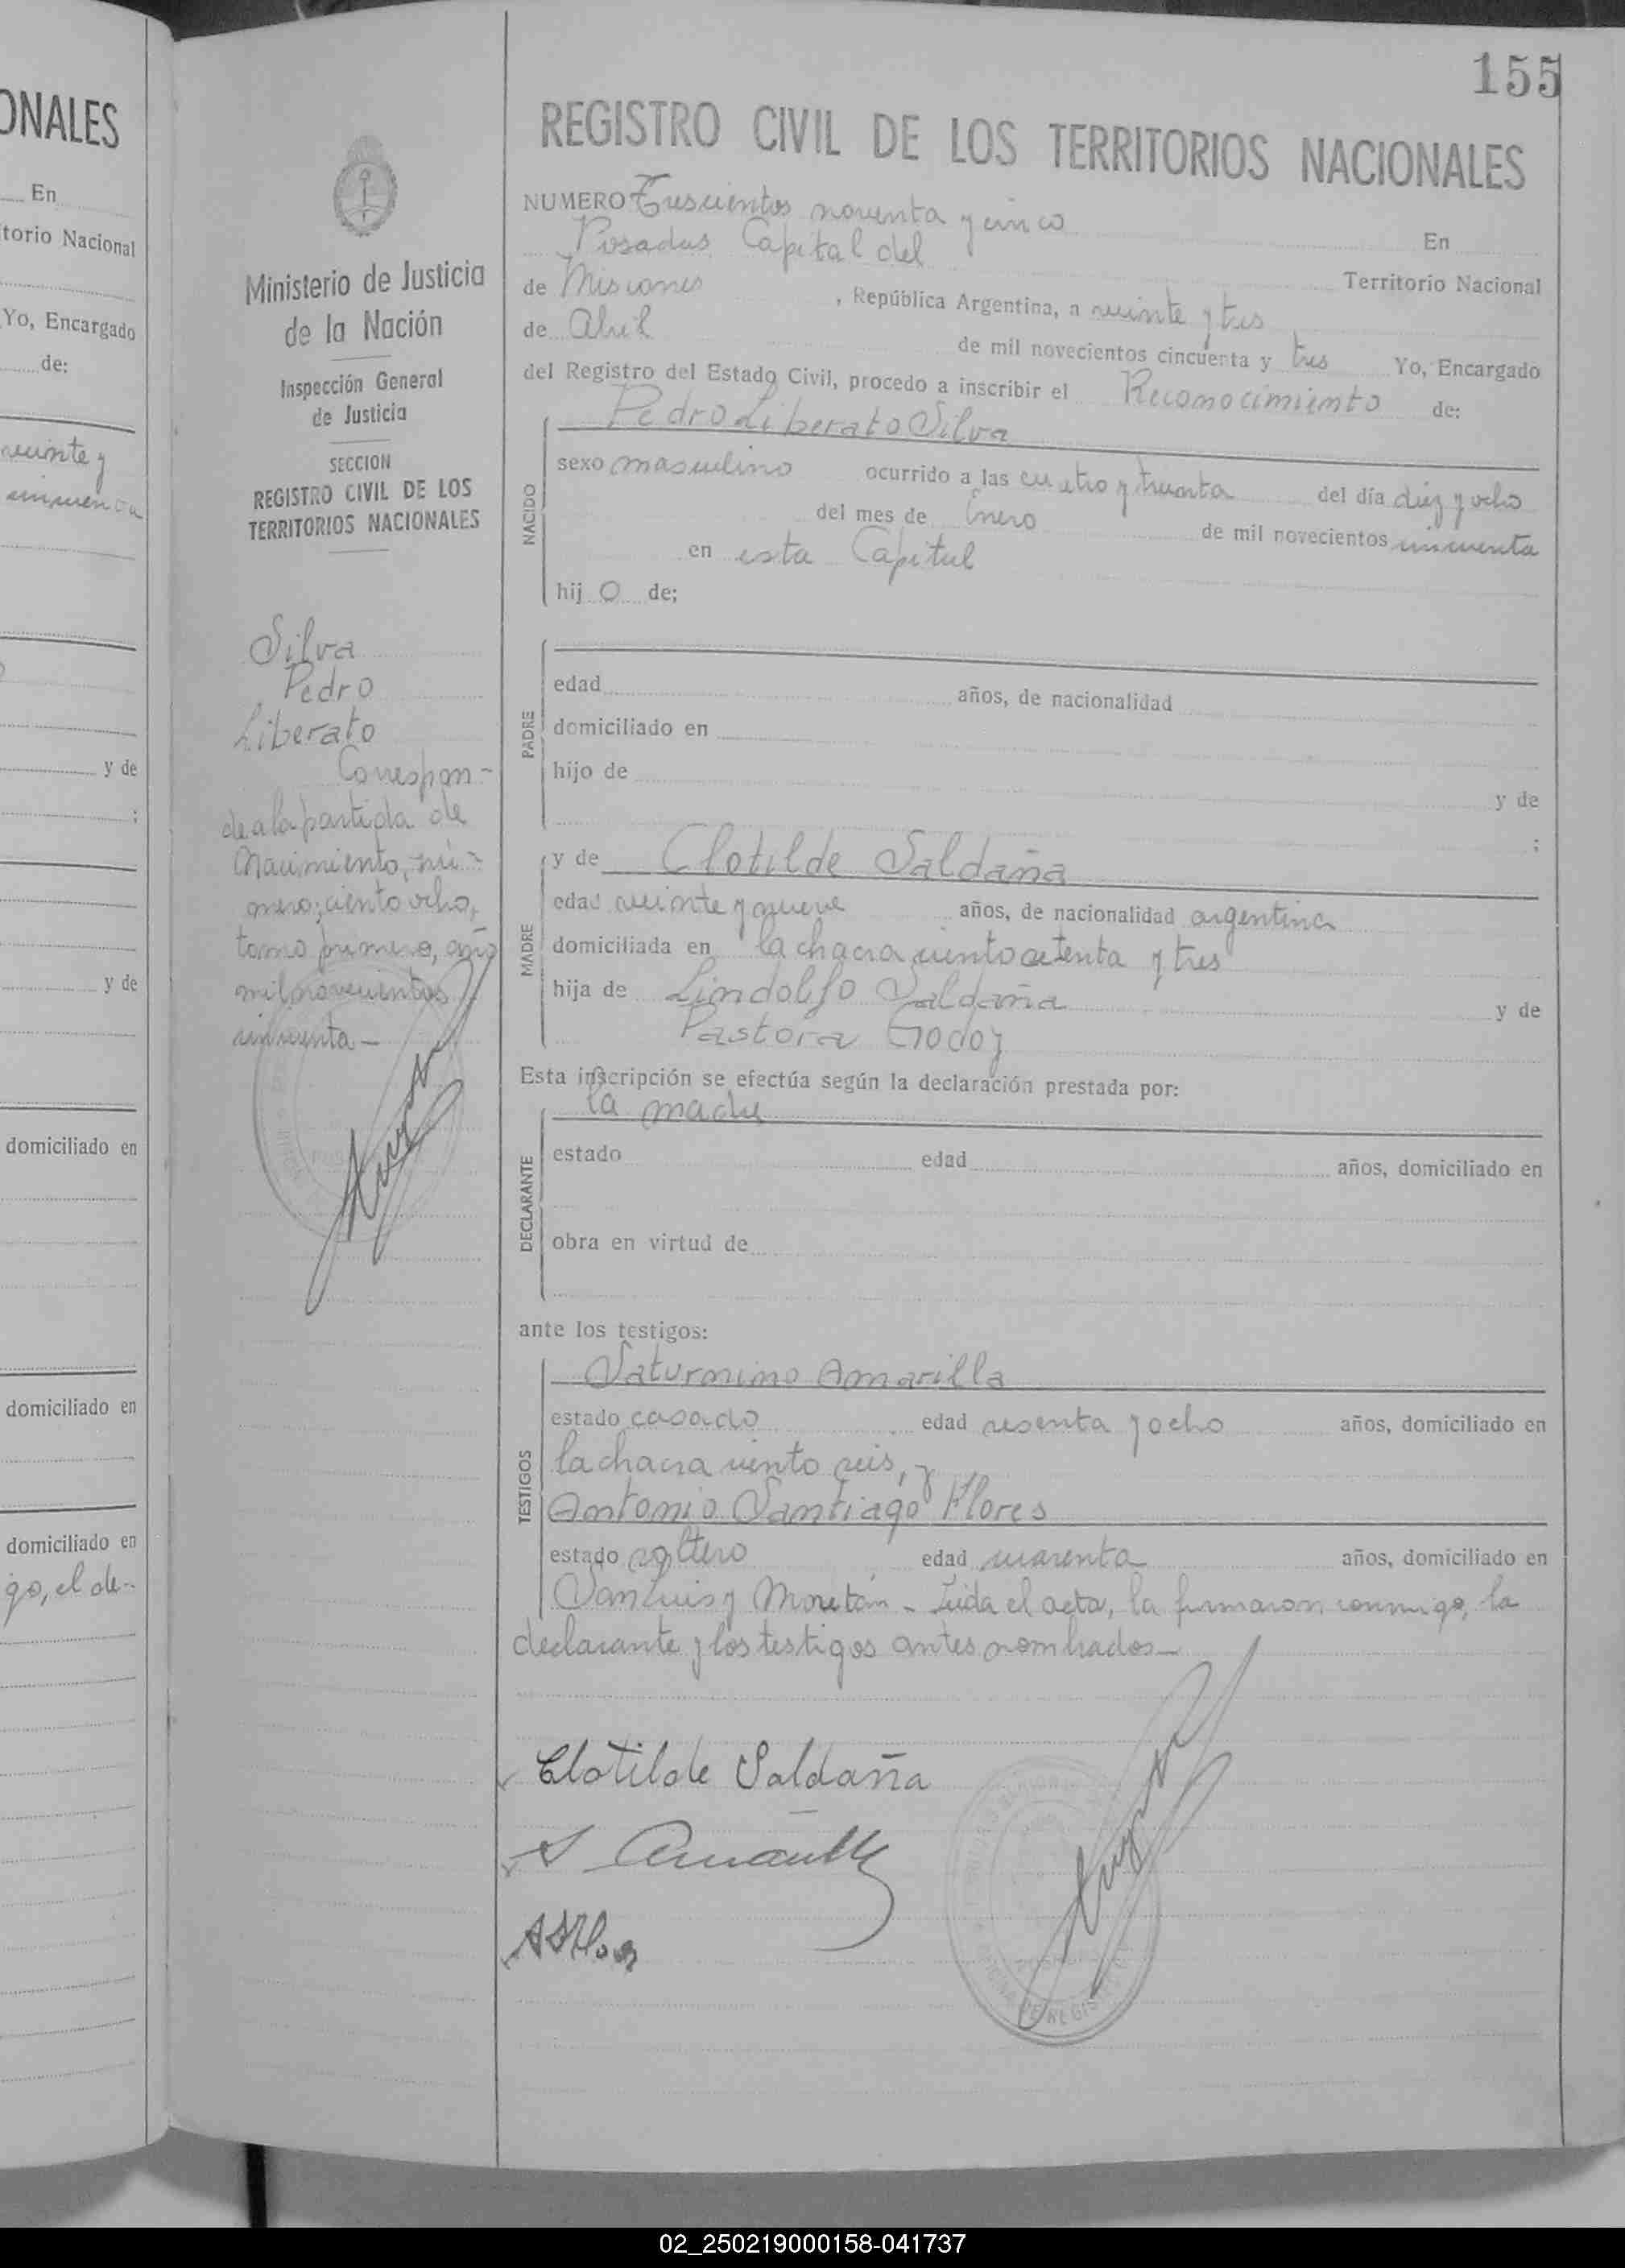 ONALES
En
torio Nacional
Yo, Encargado
de:
veinte y
cincuenta
y de
;
y de
domiciliado en
domiciliado en
domiciliado en
go, el de-
Ministerio de Justicia
de la Nación
Inspección General
de Justicia
SECCION
REGISTRO CIVIL DE LOS
TERRITORIOS NACIONALES
Silva
Pedro
Liberato
Correspon-
de a la partida de
Nacimiento, nú-
mero; ciento ocho,
tomo primero, año
mil novecientos
cincuenta -
155
REGISTRO CIVIL DE LOS TERRITORIOS NACIONALES
NUMERO Trescientos noventa y cinco En
Posadas Capital del Territorio Nacional
de Misiones, República Argentina, a veinte y tres
de Abril de mil novecientos cincuenta y tres Yo, Encargado
del Registro del Estado Civil, procedo a inscribir el Reconocimiento de:
Pedro Liberato Silva
NACIDO
sexo masculino ocurrido a las cuatro y treinta del día diez y ocho
del mes de Enero de mil novecientos cincuenta
en esta Capital
hij o de;
PADRE
edad años, de nacionalidad
domiciliado en
hijo de y de
;
MADRE
y de Clotilde Saldaña
edad veinte y nueve años, de nacionalidad argentina
domiciliada en la chacra ciento setenta y tres
hija de Lindolfo Saldaña y de
Pastora Godoy
Esta inscripción se efectúa según la declaración prestada por:
la madre
DECLARANTE
estado edad años, domiciliado en
obra en virtud de
ante los testigos:
TESTIGOS
Saturnino Amarilla
estado casado edad sesenta y ocho años, domiciliado en
la chacra ciento seis, y
Antonio Santiago Flores
estado soltero edad cuarenta años, domiciliado en
San Luis y Moretón - Leida el acta, la firmaron conmigo, la
declarante y los testigos antes nombrados -
Clotilde Saldaña
S Amarilla
A S Flores
02_250219000158-041737